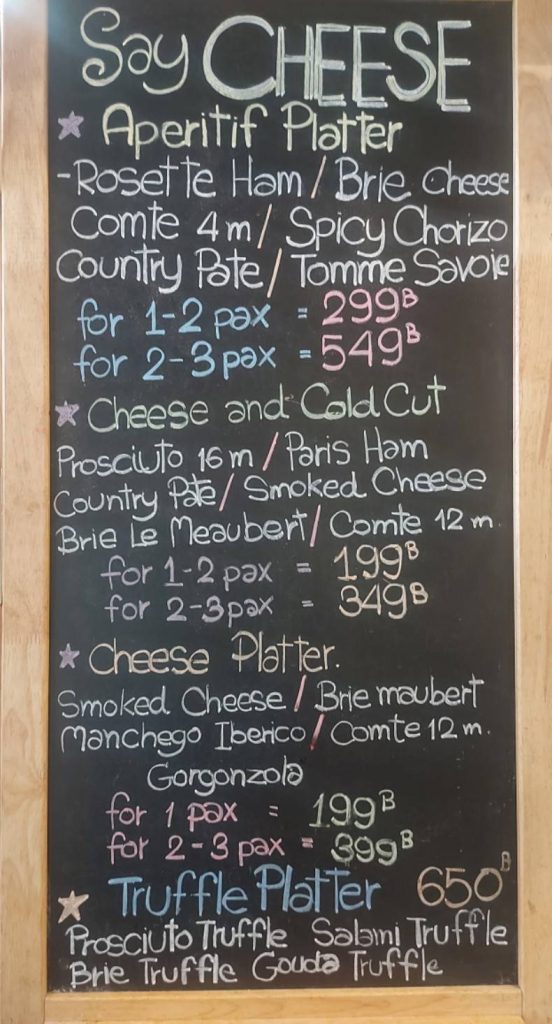 Say CHEESE
Aperitif Platter
-Rosette Ham / Brie Cheese
Comte 4 m / Spicy Chorizo
Country Pate / Tomme Savoie
for 1-2 pax = 299B
for 2-3 pax = 549B
Cheese and Cold Cut
Prosciuto 16 m / Paris Ham
Country Pate / Smoked Cheese
Brie Le Meaubert / Comte 12 m.
for 1-2 pax = 199B
for 2-3 pax = 349B
Cheese Platter.
Smoked Cheese / Brie maubert
Manchego Iberico / Comte 12 m.
Gorgonzola
for 1 pax = 199B
for 2-3 pax = 399B
Truffle Platter 650B
Prosciuto Truffle Salami Truffle
Brie Truffle Gouda Truffle